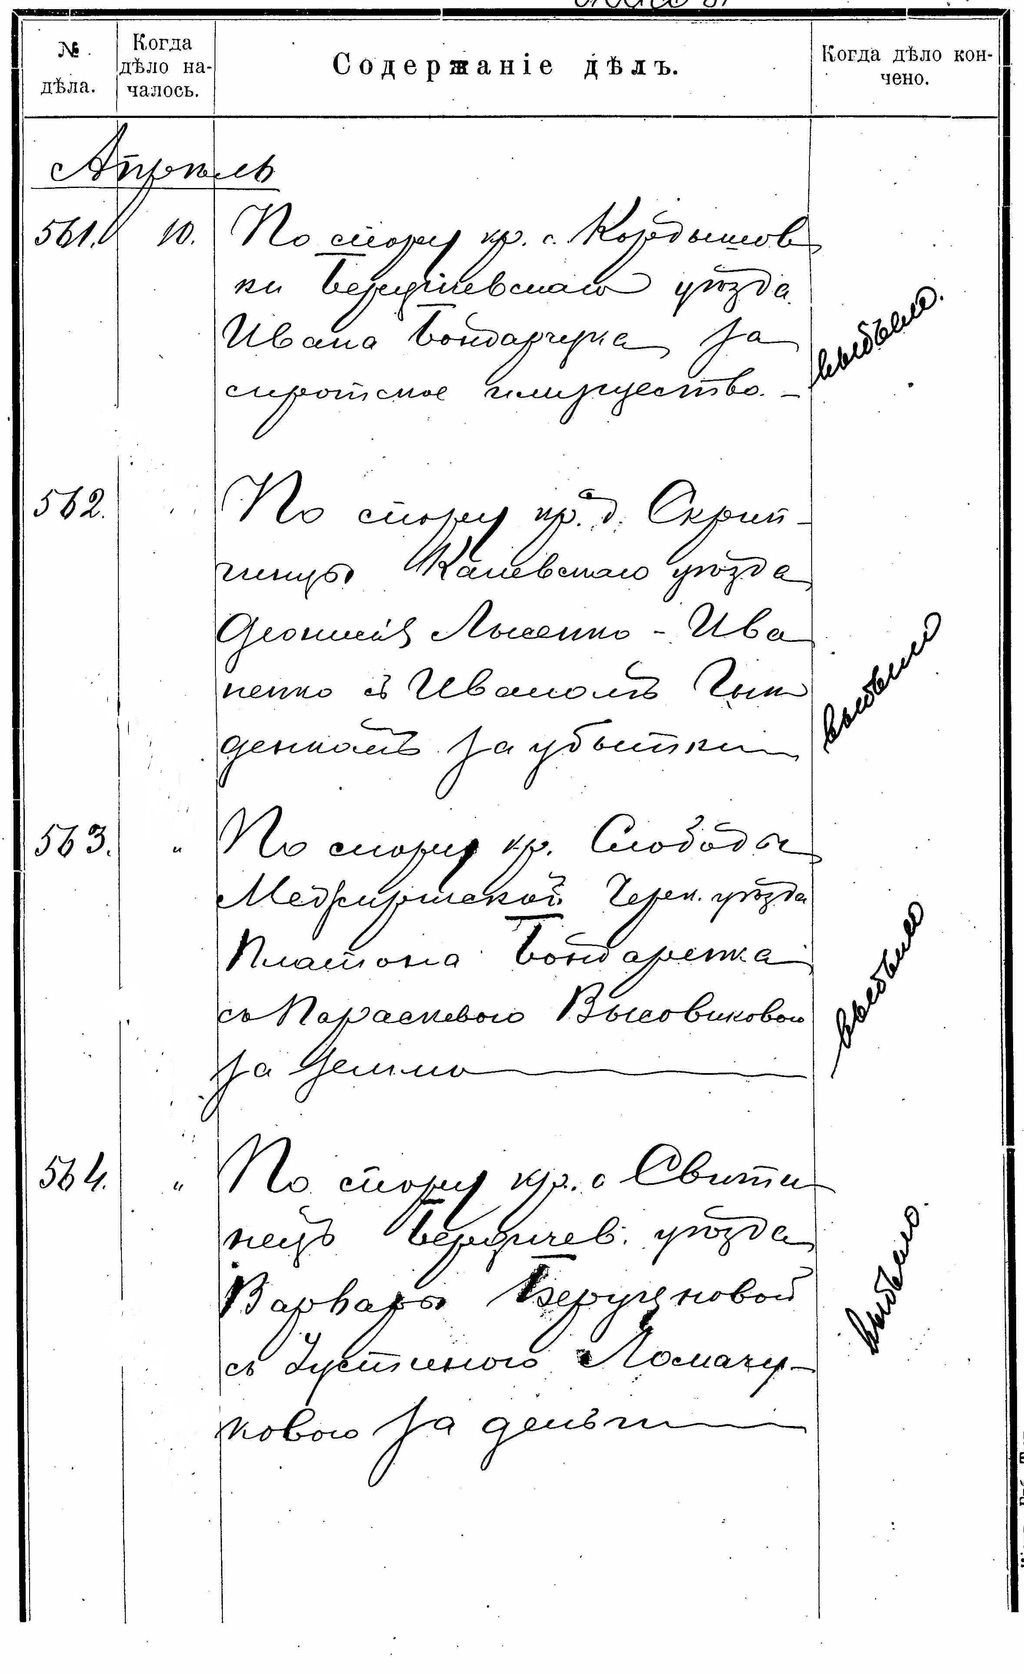 № дѣла.
Когда дѣло на-
чалось.
Содержаніе дѣлъ.
Когда дѣло кон-
чено.
Апрѣль
561. 10. По спору кр. с. Кордышов
ки Бердичевскаго уѣзда
Ивана Бондарчука за
сиротское имущество. -
выбыло.
562. По спору кр. д. Скрип-
чинцы Каневскаго уѣзда
Лысенко - Ива
ненко съ Иваномъ
денкомъ за убытки
выбыло
563. " По спору кр. Слободы
Межиричской Черк. уѣзда
Платона Бондаренка
съ Параскевою Высовиковою
за землю
выбыло
564. " По спору кр. с Свити
нецъ Бердичев. уѣзда
Варвары
съ Іустиною Ломачу-
ковою за деньги
выбыло.